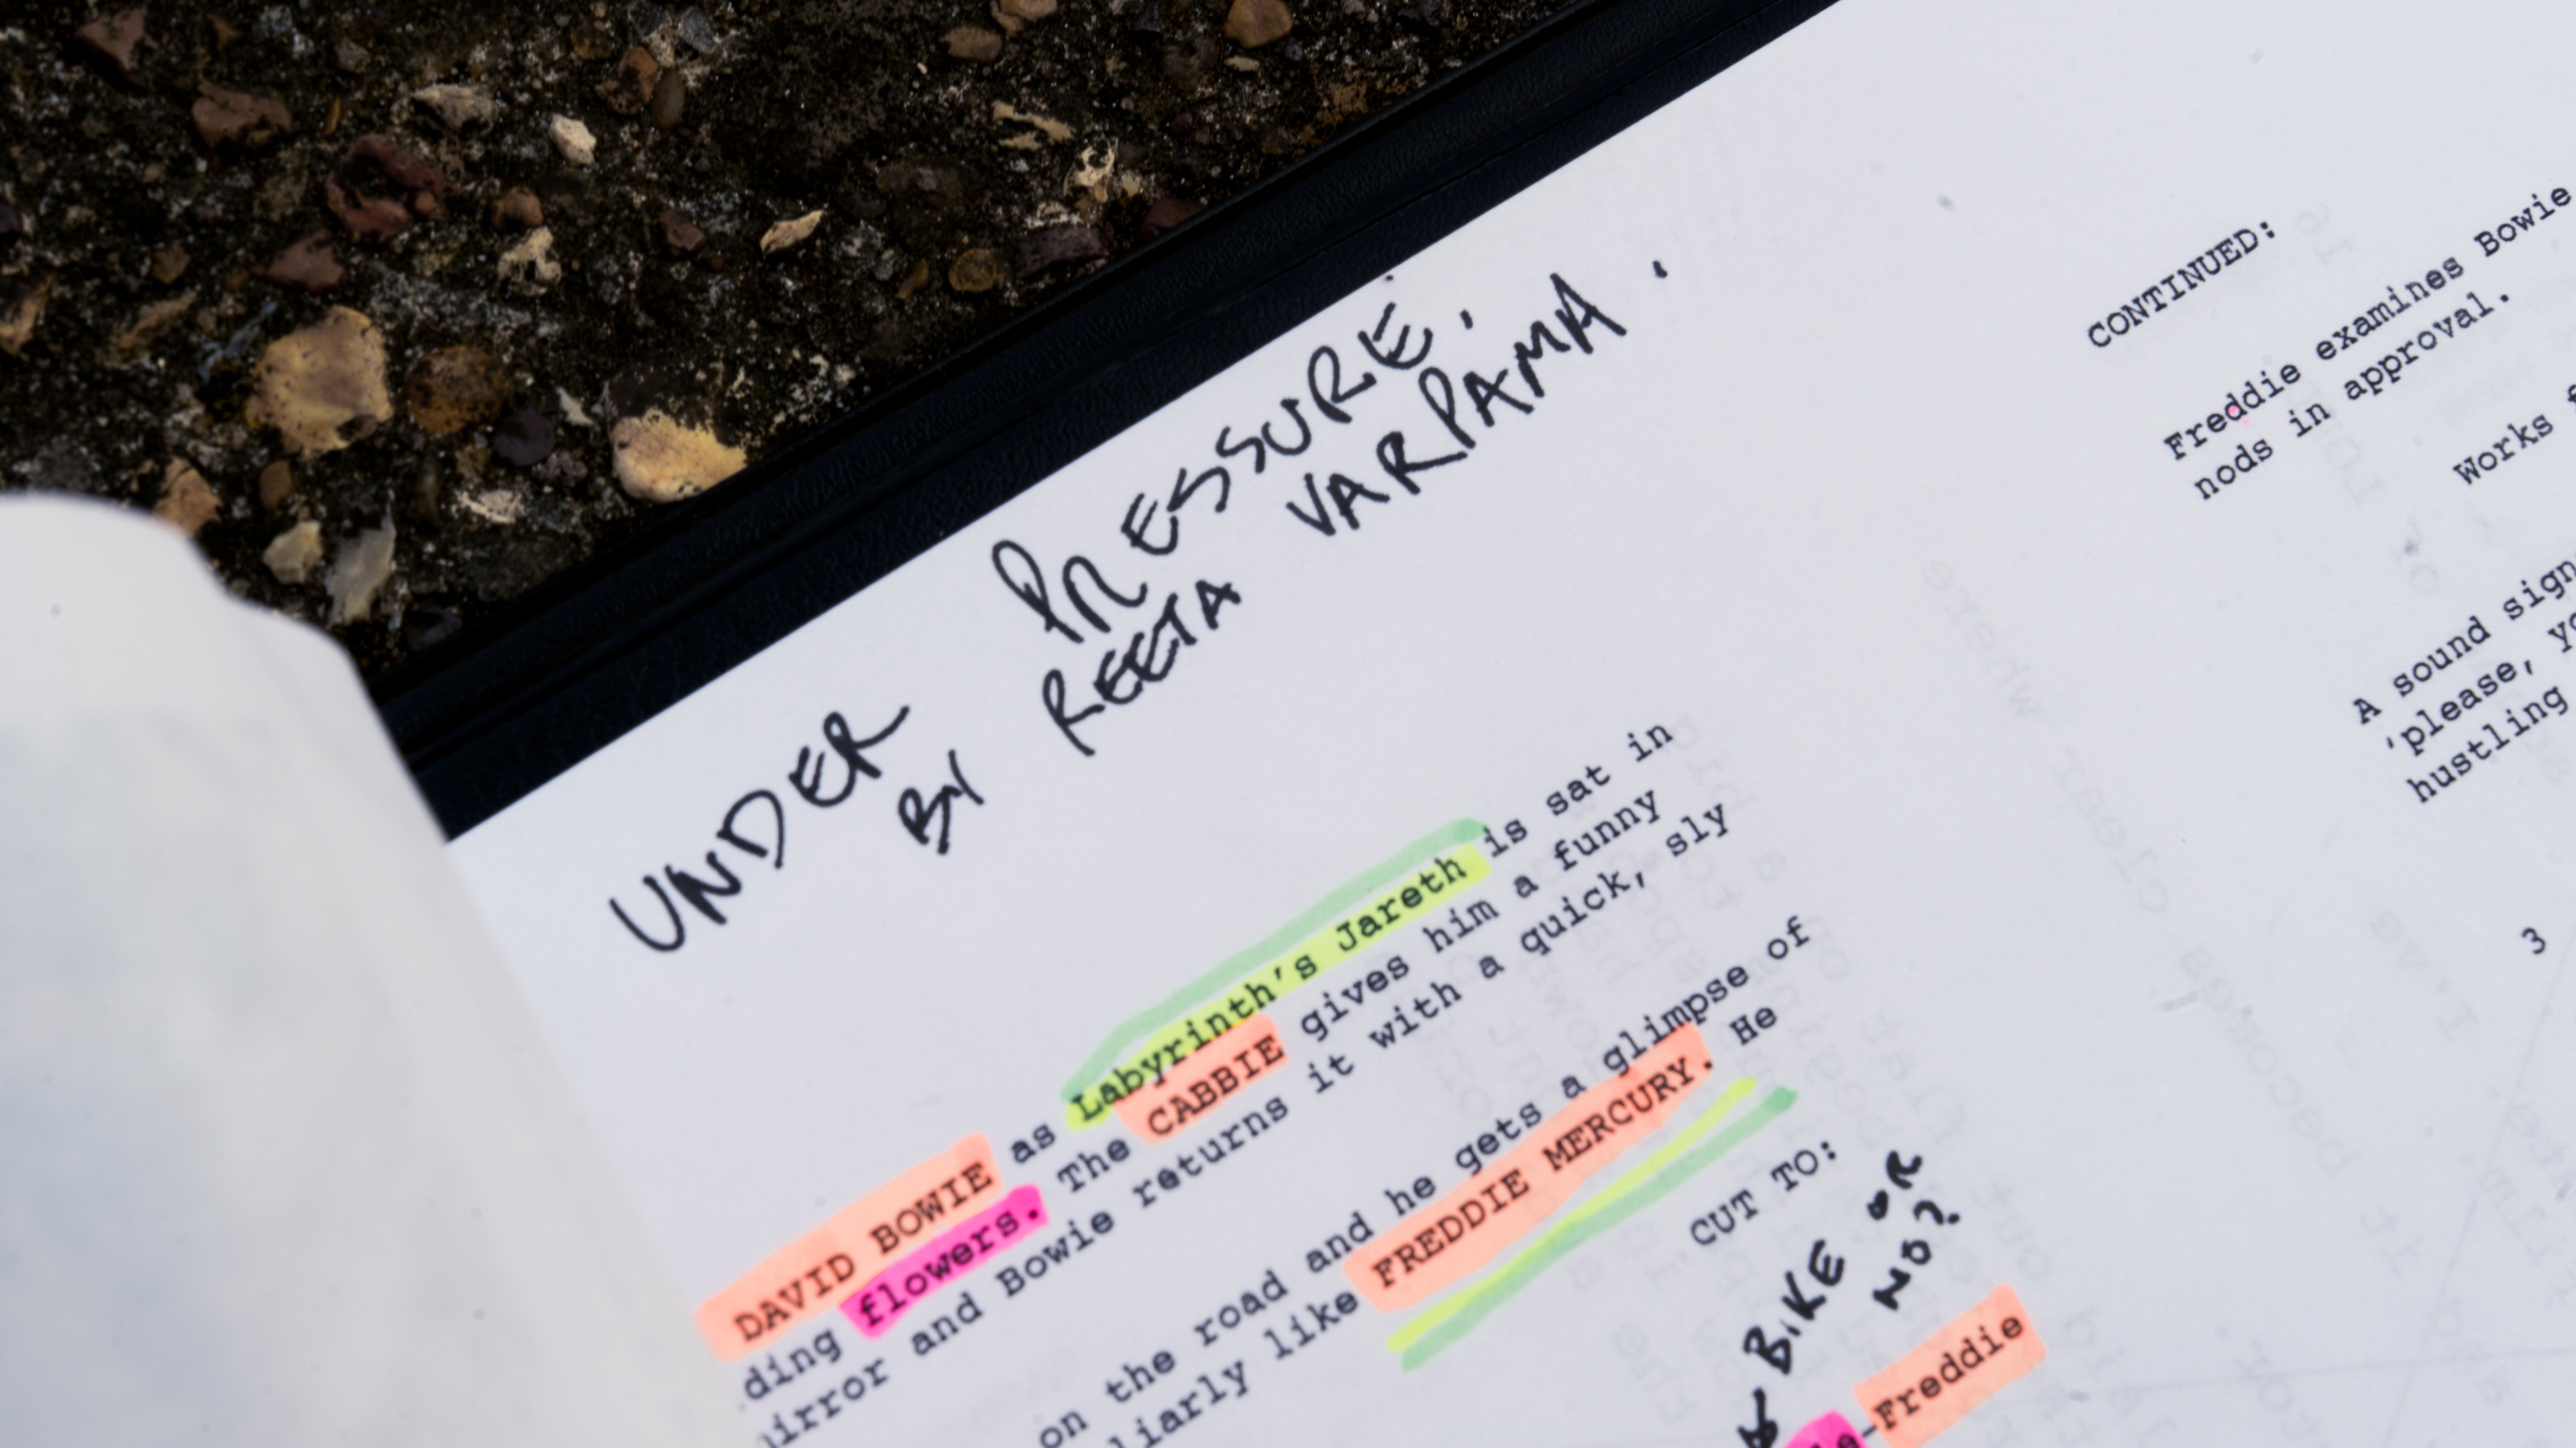 UNDER PRESSURE.
BY REETA VARPAMA.
DAVID BOWIE as Labyrinth's Jareth is sat in
ding flowers. The CABBIE gives him a funny
mirror and Bowie returns it with a quick, sly
on the road and he gets a glimpse of
liarly like FREDDIE MERCURY. He
CUT TO:
BIKE OR
NO?
Freddie
CONTINUED:
Freddie examines Bowie
nods in approval.
Works
A sound sign
'please, yo
hustling
3